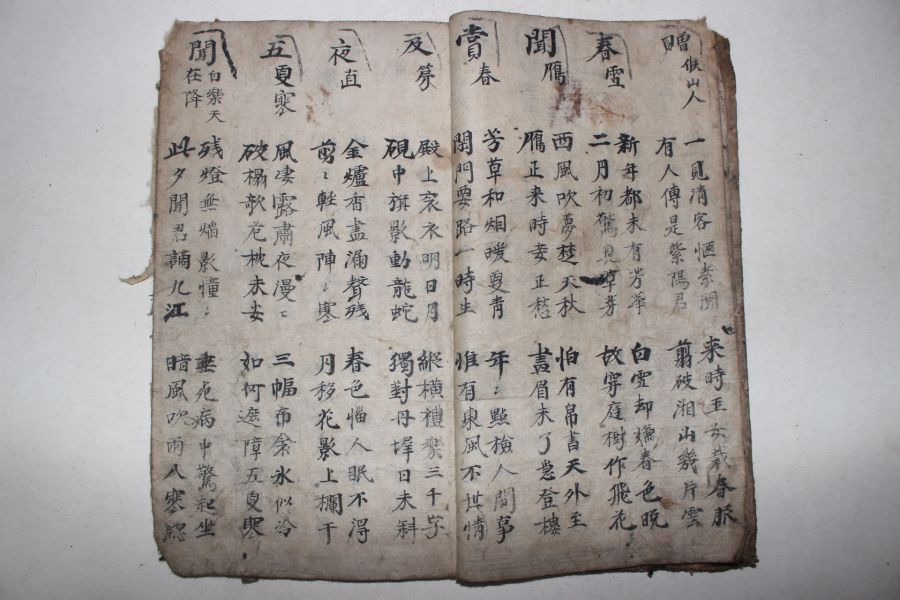 贈侯山人
一見清客愜素聞
有人傳是紫陽君
來時玉女裁春脈
剪破湘山幾片雲
春雪
新年都未有芳華
二月初驚見草芽
白雪却嫌春色晚
故穿庭樹作飛花
聞鴈
西風吹夢楚天秋
鴈正来時妾正愁
怕有帛書天外至
畫眉未了急登樓
賞春
芳草和烟暖更青
閉門要路一時生
年〻點檢人間事
惟有東風不世情
及第
殿上袞衣明日月
硯中旗影動龍蛇
縱橫禮樂三千字
獨對丹墀日未斜
夜直
金爐香盡漏聲残
剪〻輕風陣〻寒
春色惱人眠不得
月移花影上欄干
五更寒
風凄露肅夜漫〻
破榻欹危枕未安
三幅布衾氷似冷
如何遮障五更寒
聞白樂天在降
残燈無焰影憧〻
此夕聞君謫九江
垂死病中驚起坐
暗風吹雨入寒窓